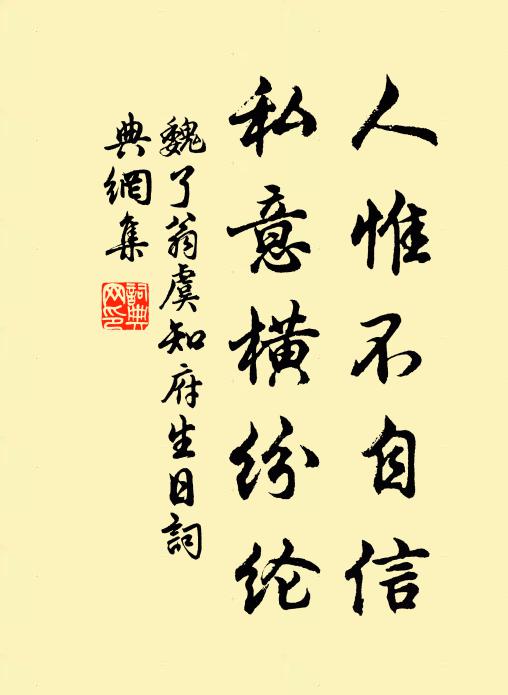 人惟不自信
私意横纷纶
魏了翁虞知府生日詞
典網集
詞典網印